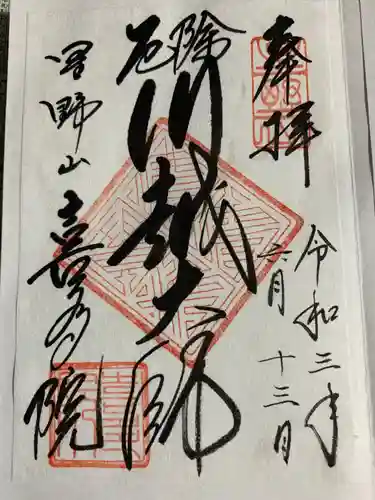 奉拝
令和三年
六月十三日
厄除
川越大師
星野山
喜多院